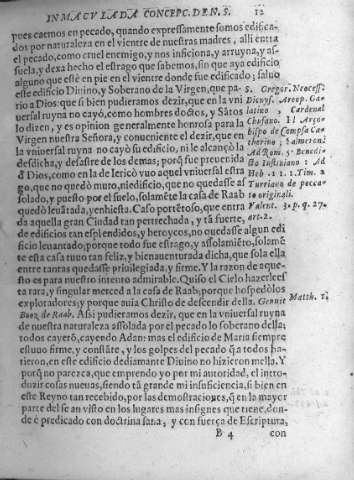 INMACVLADA CONCEPC. DE N. S. 12
pues caemos en pecado, quando expressamente somos edifica-
dos por naturaleza en el vientre de nuestras madres, allí entra
el pecado, como cruel enemigo, y nos inficiona, y arruyna, y as-
suela, y dexa hecho el estrago que sabemos, sin que aya edificio
alguno que esté en pie en el vientre donde fue edificado; saluo
este edificio Diuino, y Soberano de la Virgen, que pa-
rio a Dios: que si bien pudieramos dezir, que en la vni
uersal ruyna no cayó, como hombres doctos, y Sãtos
lo dizen, y es opinion generalmente honrosa para la
Virgen nuestra Señora, y conueniente el dezir, que en
la vniuersal ruyna no cayò su edificio, ni le alcançò la
desdicha, y desastre de los demas; porq̃ fue preuenida
d̃ Dios, como en la de Iericò vuo aquel vniuersal estra
go, que no quedò muro, ni edificio, que no quedasse as
solado, y puesto por el suelo, solamẽte la casa de Raab
quedò leuãtada, y enhiesta. Caso portẽtoso, que entra
da aquella gran Ciudad tan pertrechada, y tã fuerte,
de edificios tan esplendidos, y heroycos, no quedasse algun edi
ficio leuantado; porque todo fue estrago, y assolamiẽto, solamẽ
te esta casa tuuo tan feliz, y bienauenturada dicha, que sola ella
entre tantas quedasse priuilegiada, y firme. Y la razon de aque-
sto es para nuestro intento admirable. Quiso el Cielo hazerle es
ta rara, y singular merced a la casa de Raab; porque hospedò los
exploradores; y porque auia Christo de descendir della. Genuit
Booz de Raab. Assi pudieramos dezir, que en la vniuersal ruyna
de nuestra naturaleza assolada por el pecado lo soberano della;
todos cayerõ, cayendo Adan: mas el edificio de Maria siempre
estuuo firme, y constãte, y los golpes del pecado q̃ a todos ha-
tieron, en este edificio de diamante Diuino no hizieron mella. Y
porq̃ no parezca, que emprendo yo per mi autoridad, el intro-
duzir cosas nueuas, siendo tã grande mi insuficiencia, si bien en
este Reyno tan recebido, por las demostraciones, q̃ en la mayor
parte del se an visto en los lugares mas insignes que tiene, don-
de è predicado con doctrina sana, y con fuerça de Escriptura,
B 4 con
S. Gregor. Neocess.
Dionys. Areop. Ga-
latino, Cardenal
Chusano. El Arço-
bispo de Compsa Ca-
tharino; Salmeron:
Ad Rom. 5. Benedi-
cto Iustiniano: Ad
Heb. 1. 1. 1. Tim. 2
Turriano de pecca-
to originali.
Valent. 3. p. q. 27.
art. 2.
Matth. 1.